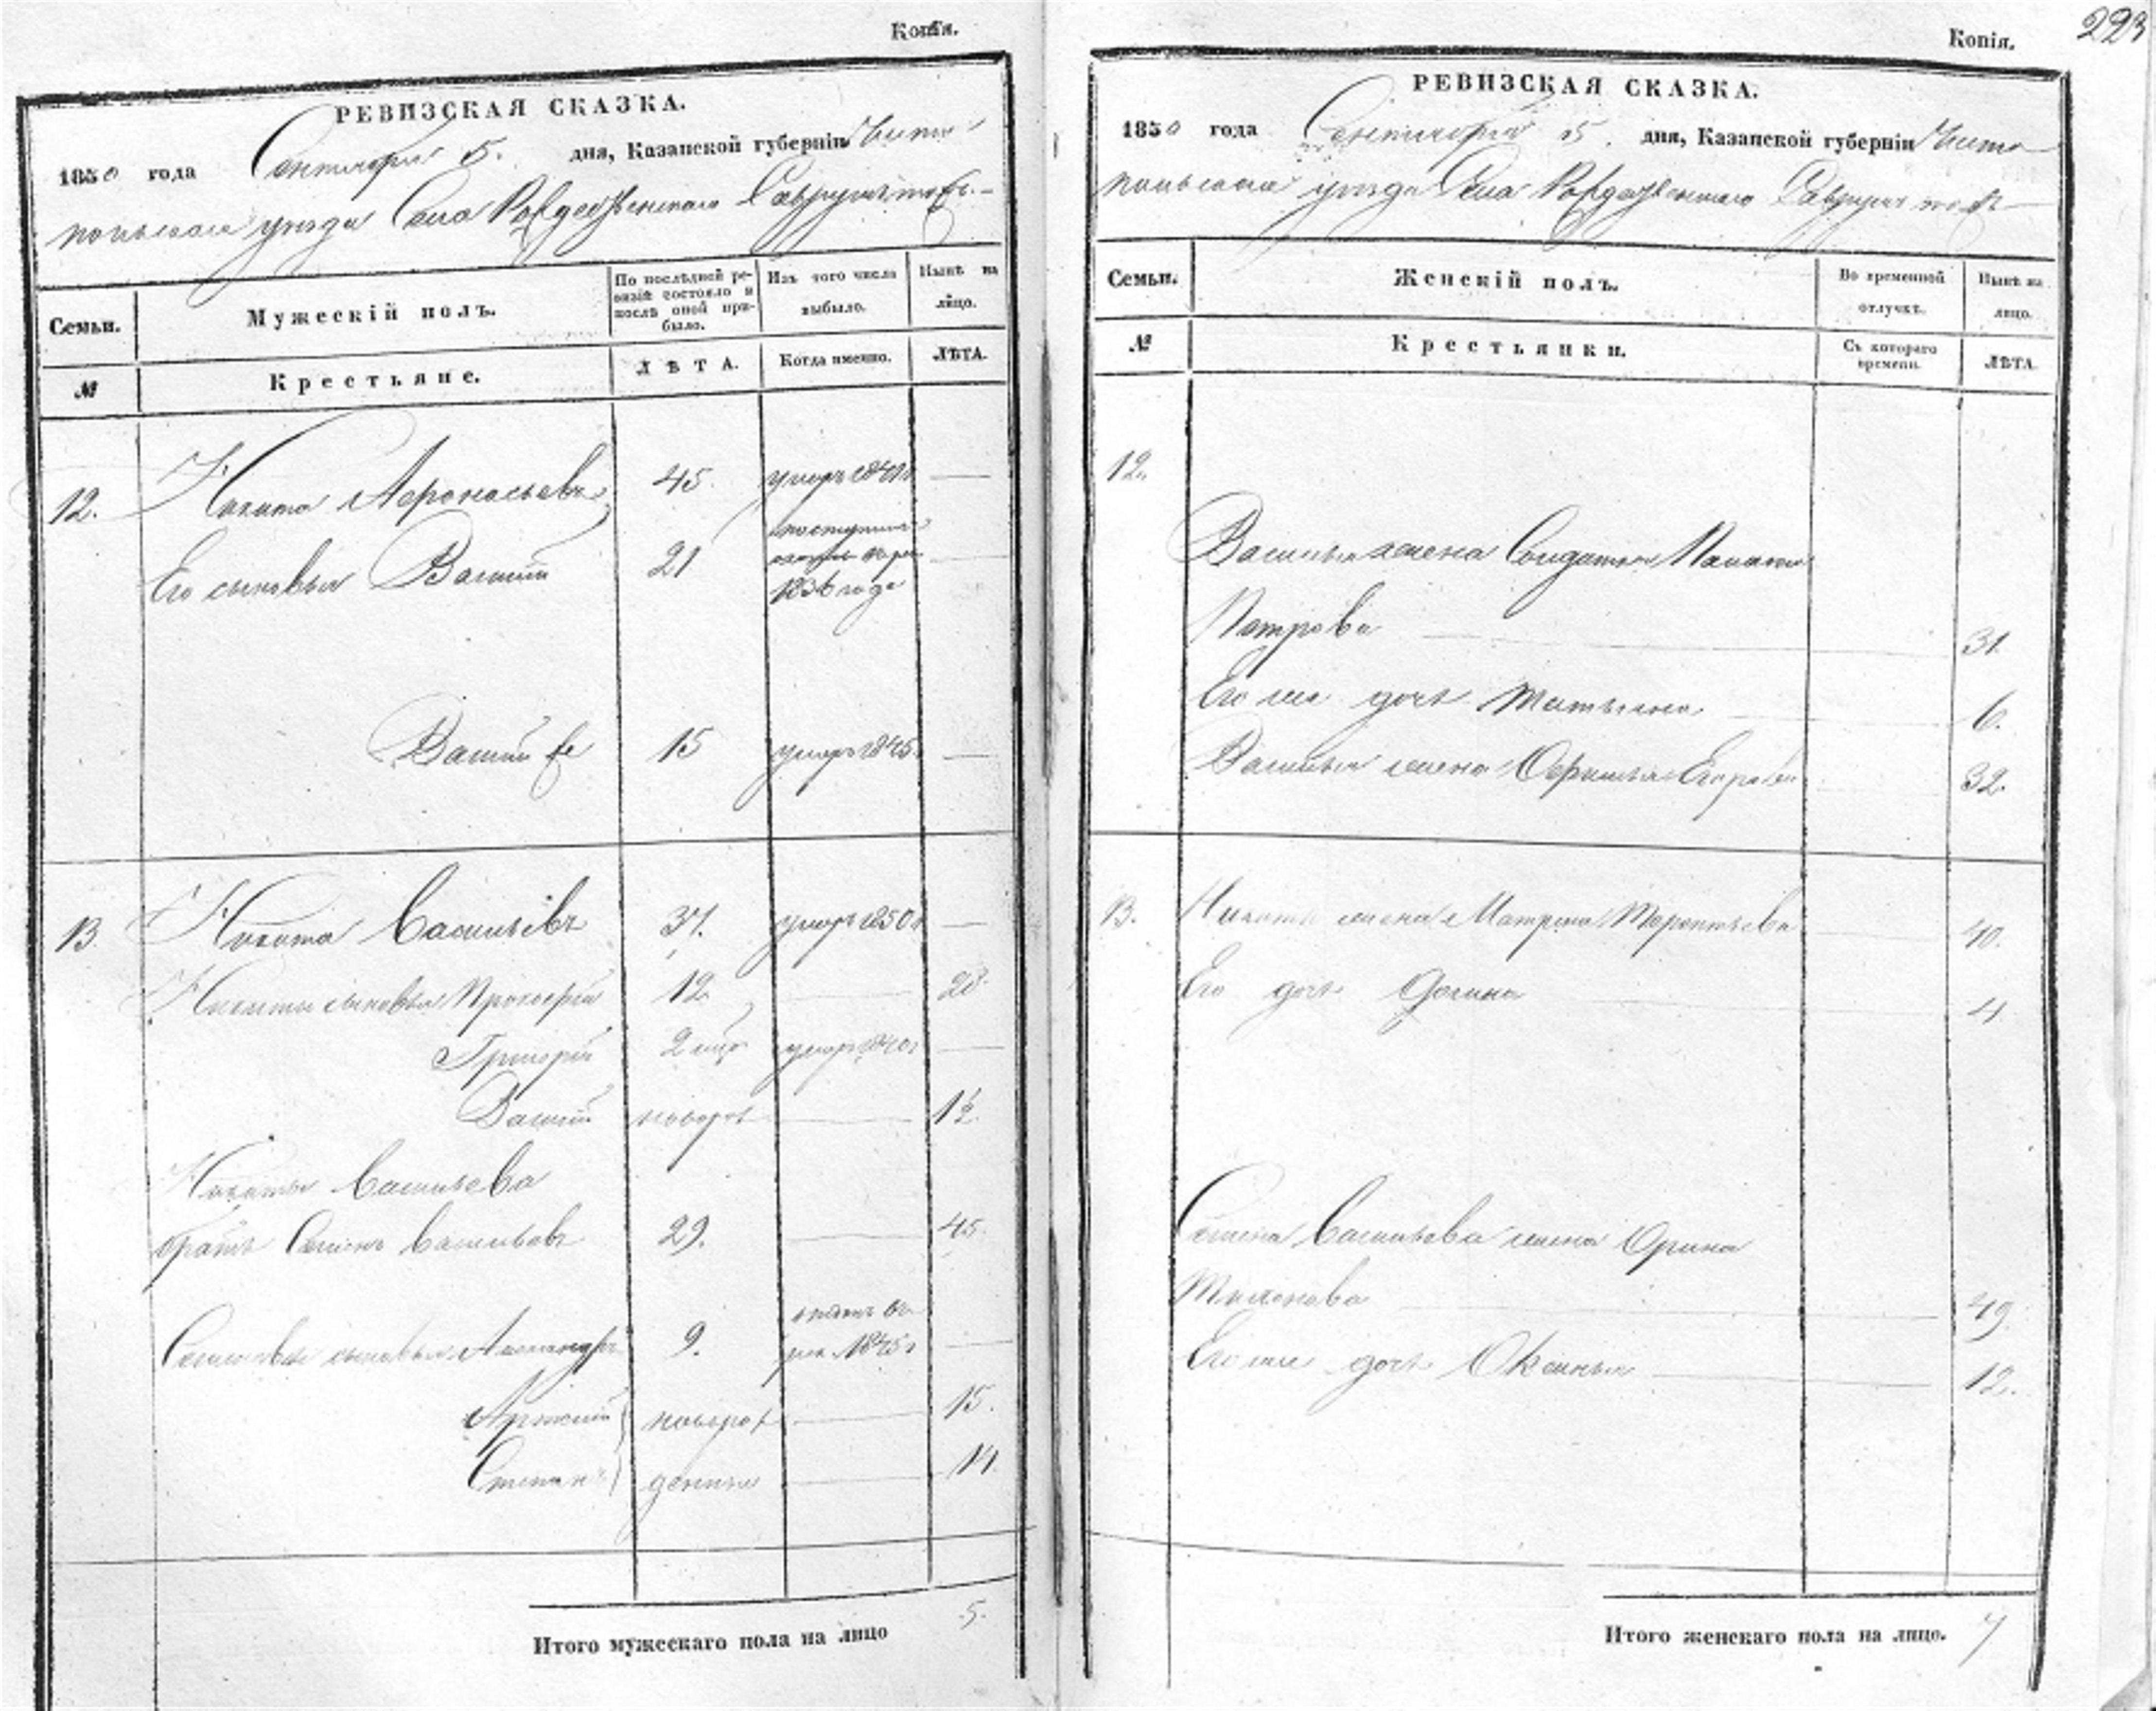 Копія.
РЕВИЗСКАЯ СКАЗКА.
1850 года Сентября 5. дня, Казанской губерніи Чисто-
польскаго уѣзда Села Рождественскаго
Семьи. Мужескій полъ. По послѣдней ре-визіи состояло и послѣ оной при-было. Изъ того числа выбыло. Нынѣ на лицо.
№ Крестьяне. ЛѢТА. Когда именно. ЛѢТА.
12. Никита Афонасьевъ 45. умеръ —
Его сыновья Василій 21 поступилъ 1836 года —
Василій 2й 15 умеръ 1845 —
13 Никита Васильевъ 37. умеръ 1850 г —
Никиты сыновья Прокофій 12 — 28.
Григорій 2 умеръ 1840 г —
Василій новорож — 12.
Никиты Васильева
братъ Семенъ Васильевъ 29. — 45.
Семеновы сыновья Александръ 9. отданъ въ рек. 1845 г —
новорож — 15.
Степанъ денные — 14.
Итого мужескаго пола на лицо 5.
223
Копія.
РЕВИЗСКАЯ СКАЗКА.
1850 года Сентября 5. дня, Казанской губерніи Чисто
польскаго уѣзда Села Рождественскаго
Семьи. Женскій полъ. Во временной отлучкѣ. Нынѣ на лицо.
№ Крестьянки. Съ котораго времени. ЛѢТА.
12.
Васильева жена Солдатка
Петрова — 31.
Его же дочь Татьяна — 6.
Васильева жена Офимья Егорова 32.
13. Никиты жена Матрена Терентьева — 40.
Его дочь — 4
Семена Васильева жена Орина
— 49
Его же дочь Оксинья — 12.
Итого женскаго пола на лицо. 7